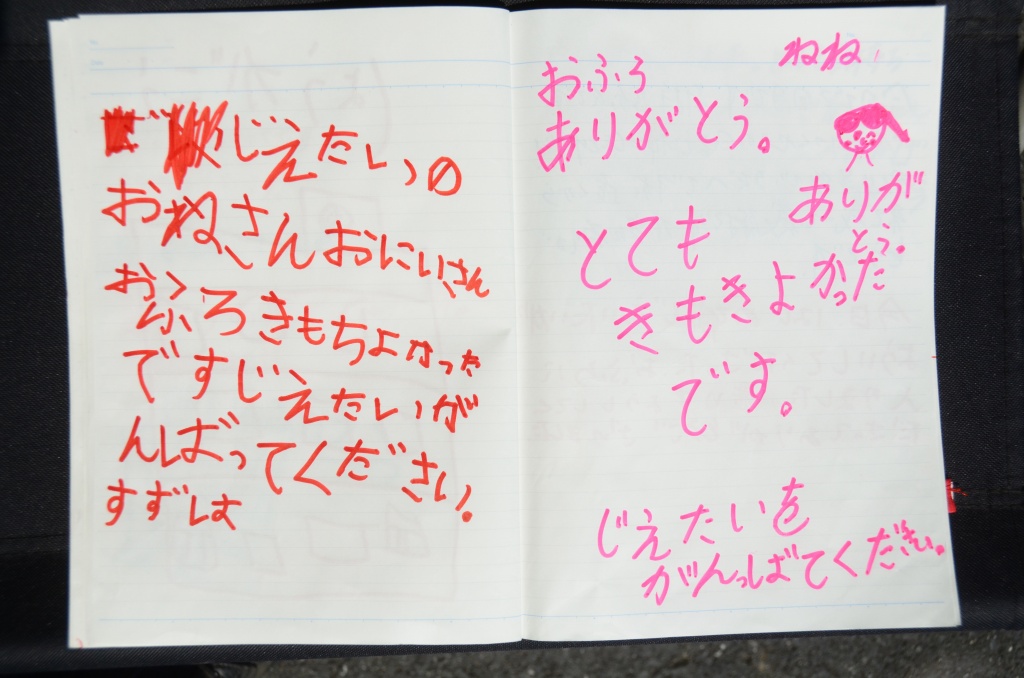 じえたいの
おねさんおにいさん
おふろきもちよかった
ですじえたいが
んばってください。
すずしは
ねね
おふろ
ありがとう。
ありが
とう。
とても
きもきよかった
です。
じえたいを
がんっばてください。